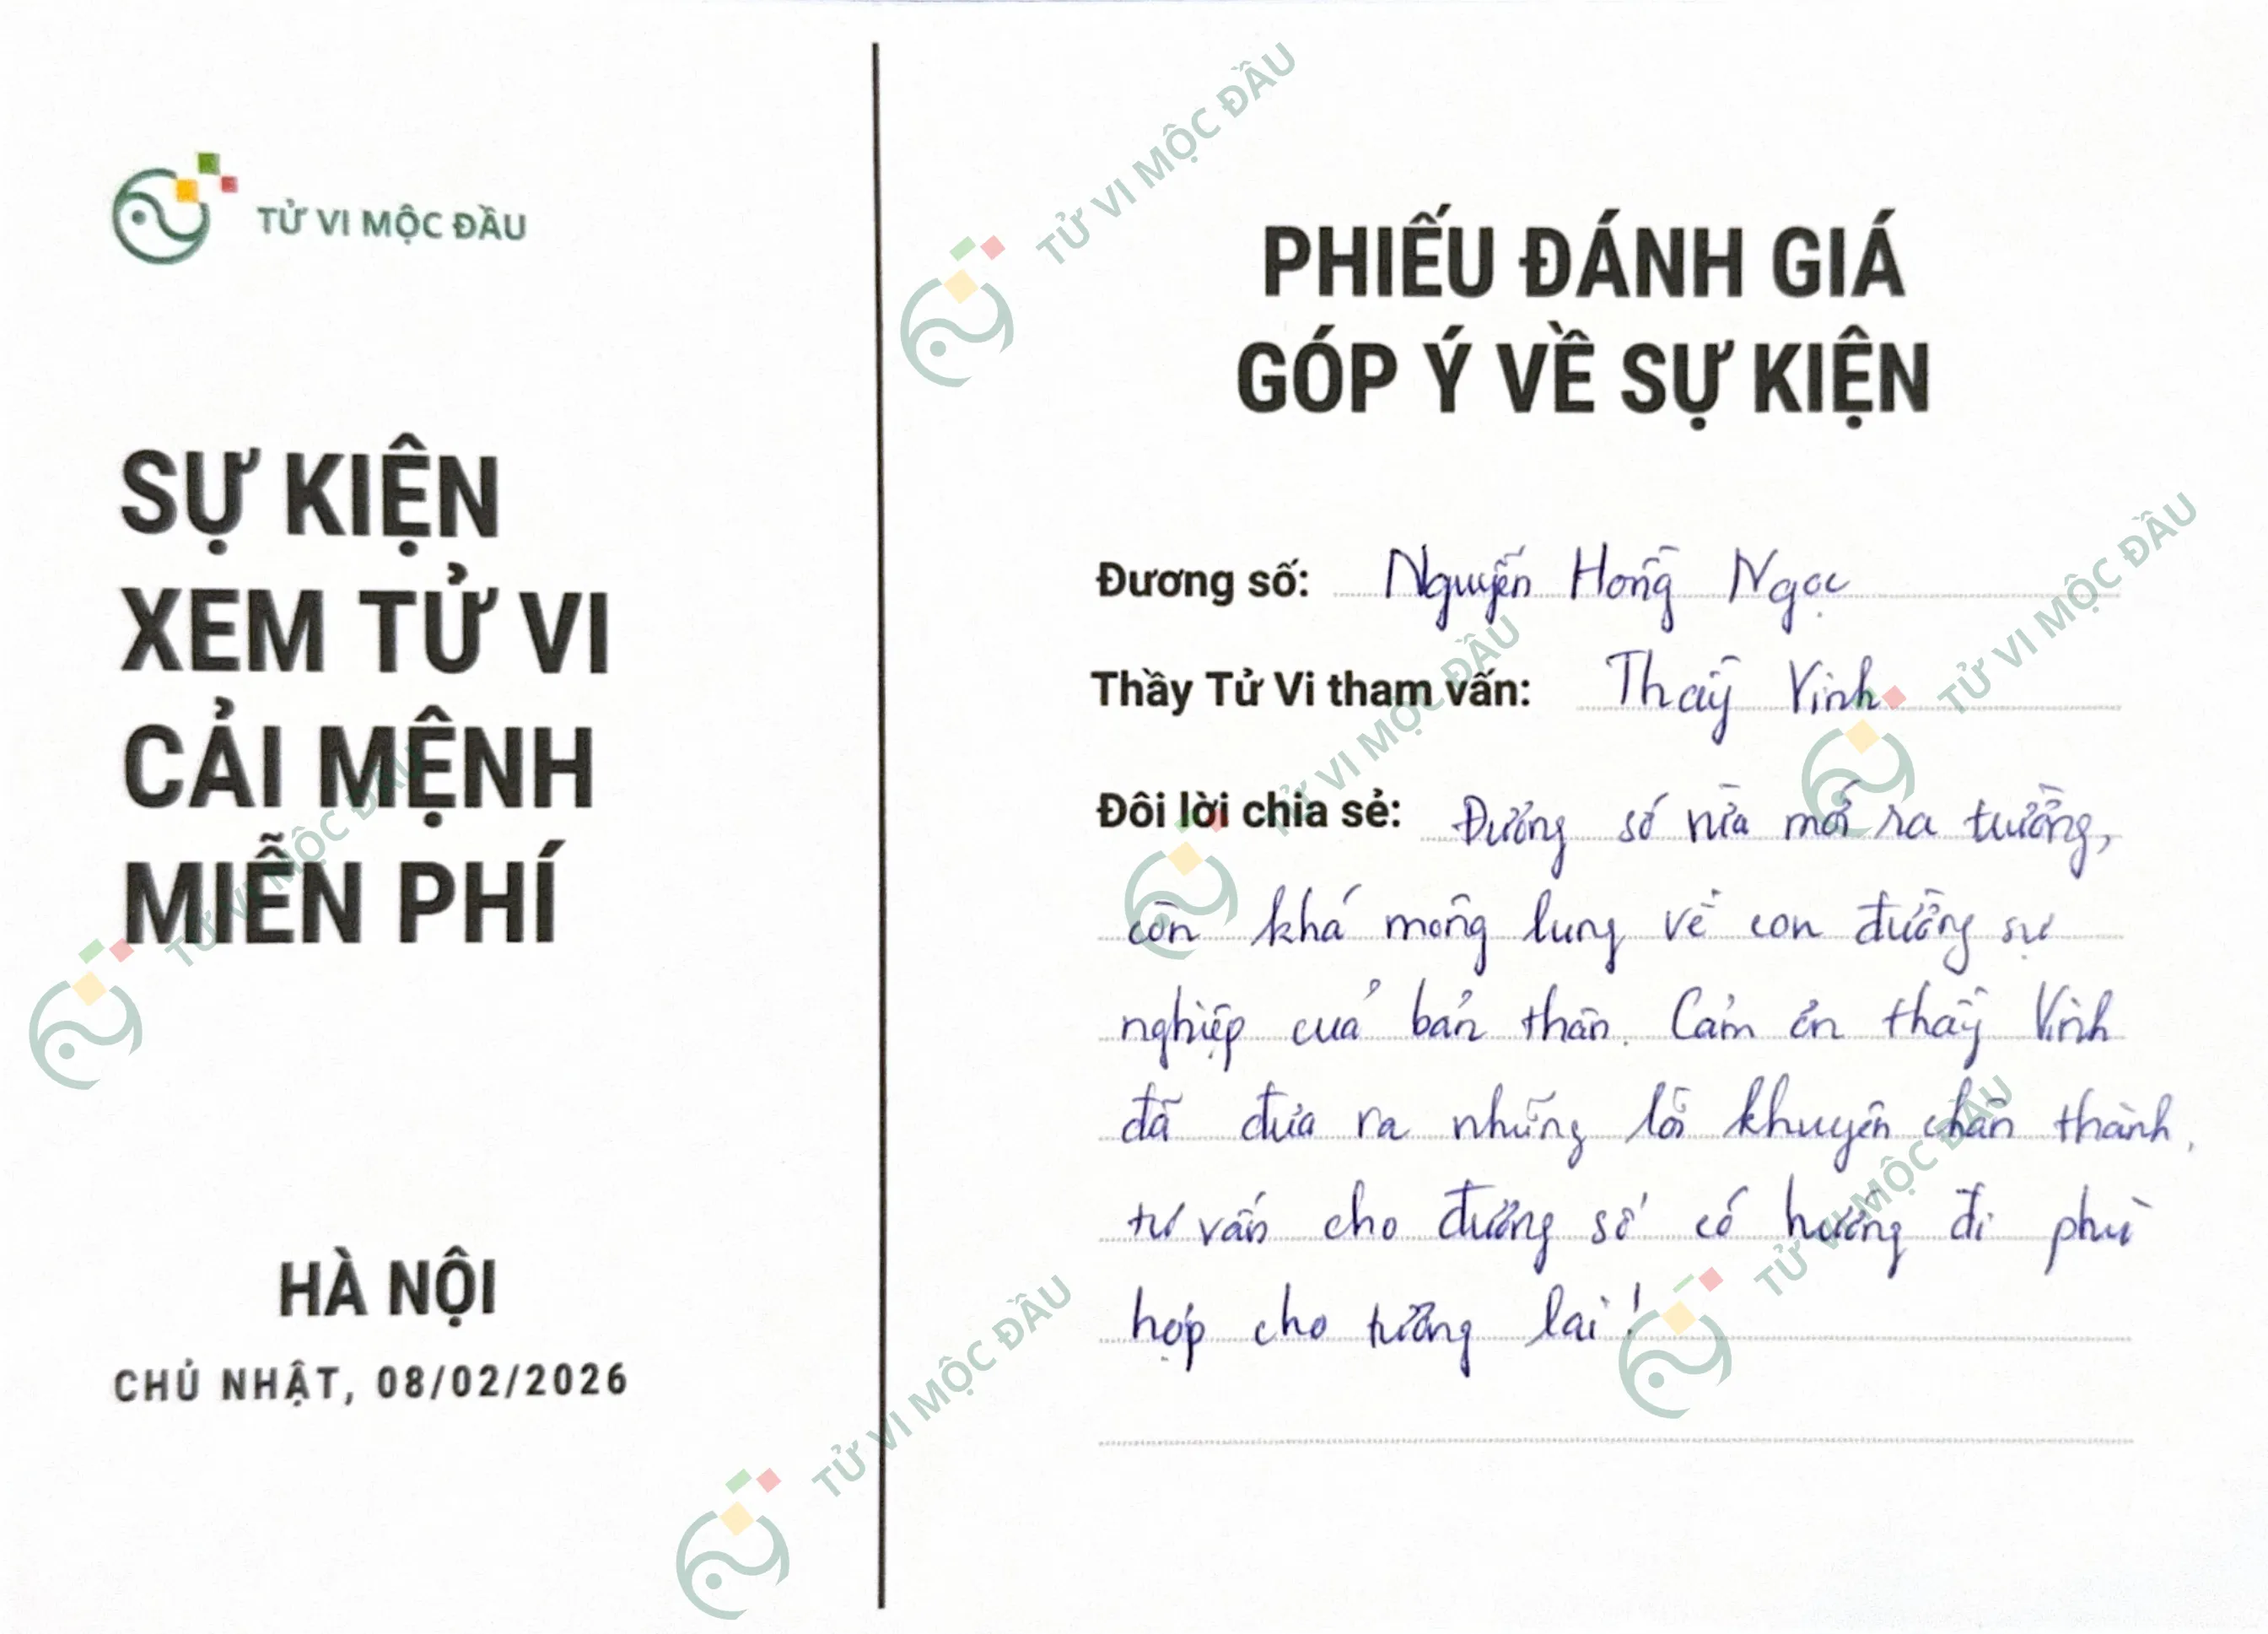 TỬ VI MỘC ĐẦU
SỰ KIỆN
XEM TỬ VI
CẢI MỆNH
MIỄN PHÍ
HÀ NỘI
CHỦ NHẬT, 08/02/2026
PHIẾU ĐÁNH GIÁ
GÓP Ý VỀ SỰ KIỆN
Đương số: Nguyễn Hồng Ngọc
Thầy Tử Vi tham vấn: Thầy Vinh
Đôi lời chia sẻ: Đương số vừa mới ra trường,
còn khá mông lung về con đường sự
nghiệp của bản thân. Cảm ơn thầy Vinh
đã đưa ra những lời khuyên chân thành,
tư vấn cho đương số có hướng đi phù
hợp cho tương lai!
TỬ VI MỘC ĐẦU
TỬ VI MỘC ĐẦU
TỬ VI MỘC ĐẦU
TỬ VI MỘC ĐẦU
TỬ VI MỘC ĐẦU
TỬ VI MỘC ĐẦU